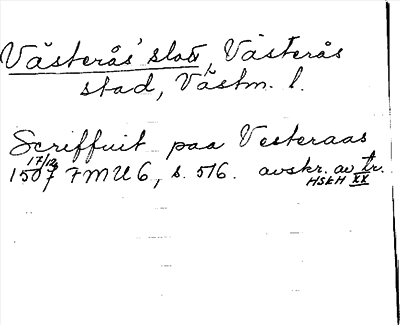 Västerås slott, Västerås
stad, Västm. l.
Scriffuit paa Vesteraas
17/12
1507 FMU 6, s. 516. avskr. av tr.
HSkH XX